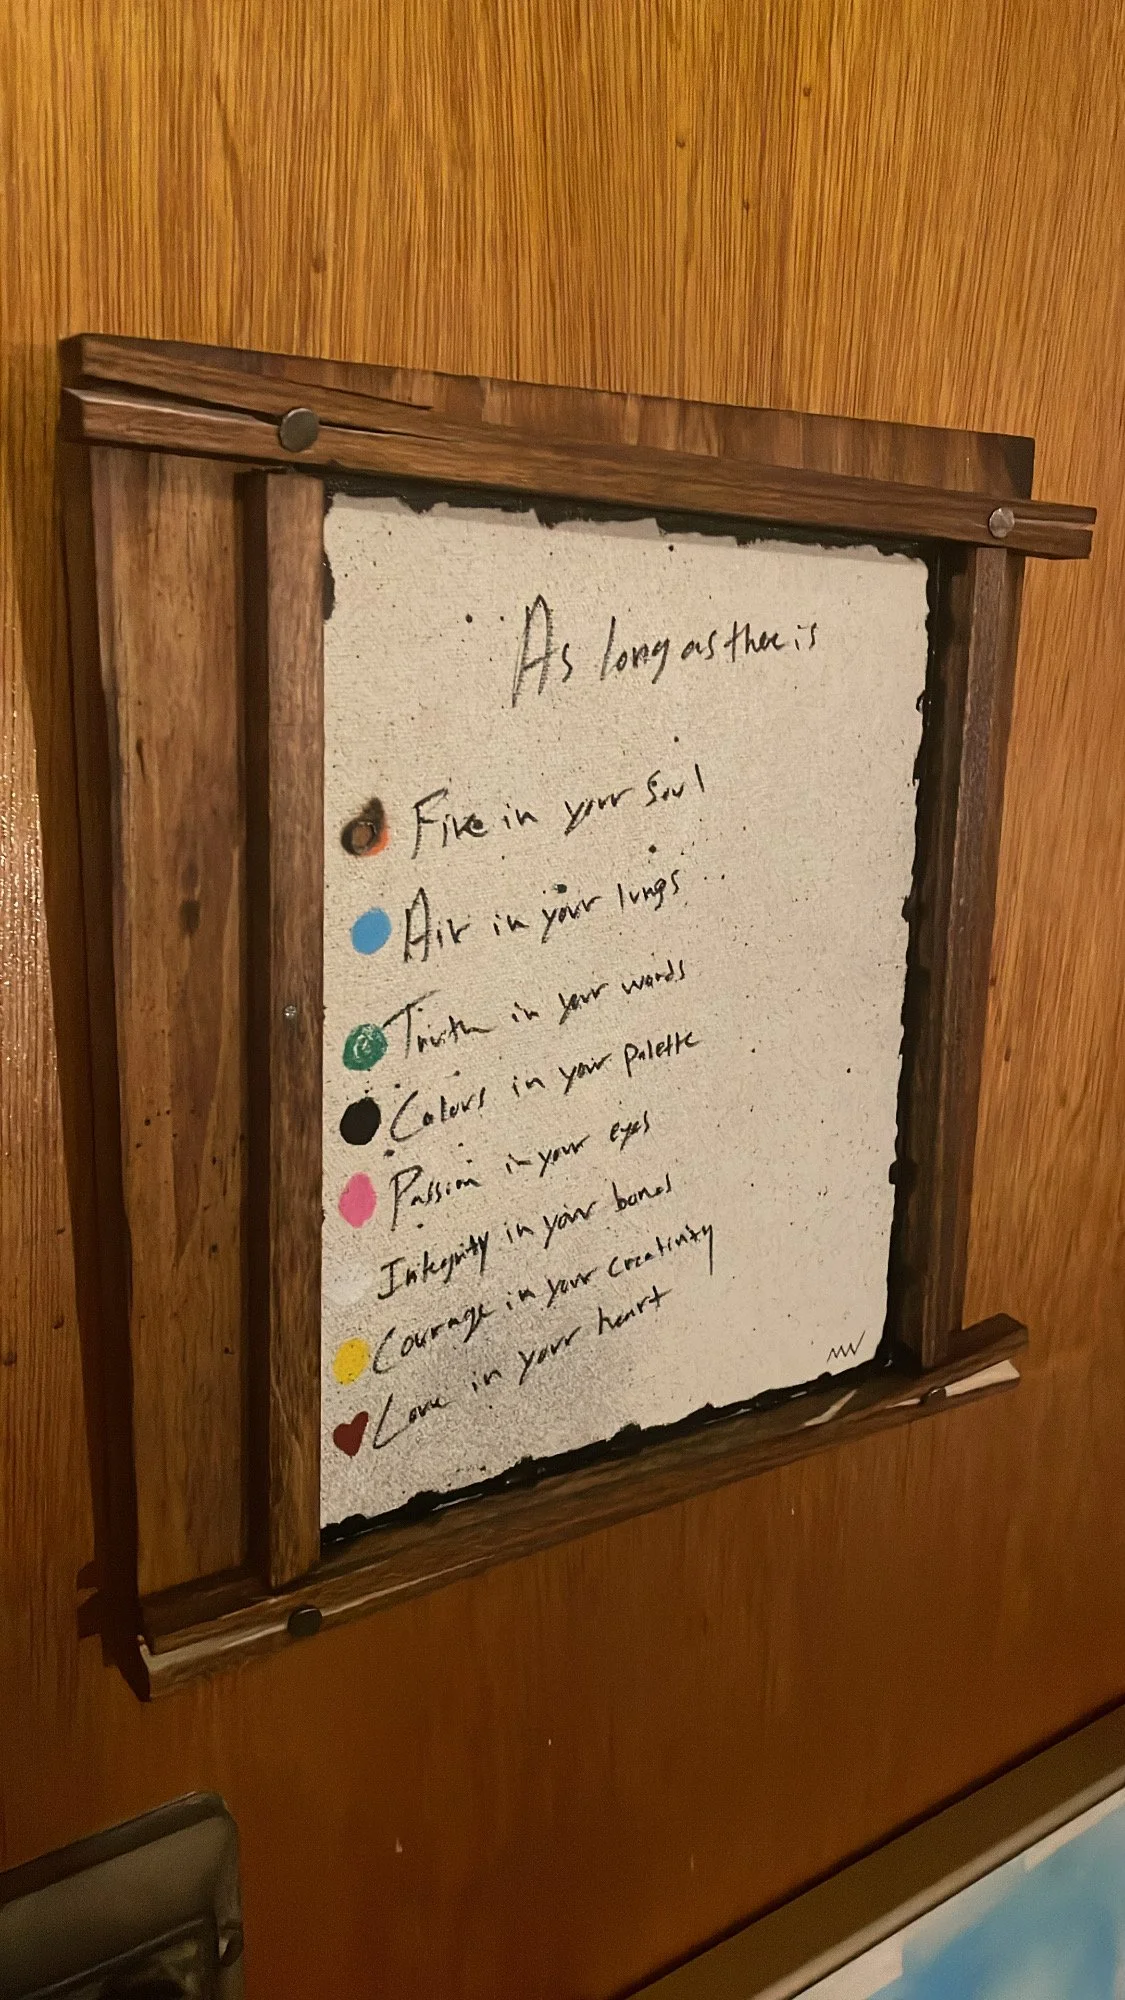 As long as there is
Fire in your Soul
Air in your lungs
Truth in your words
Colors in your palette
Passion in your eyes
Integrity in your bones
Courage in your creativity
Love in your heart
MW